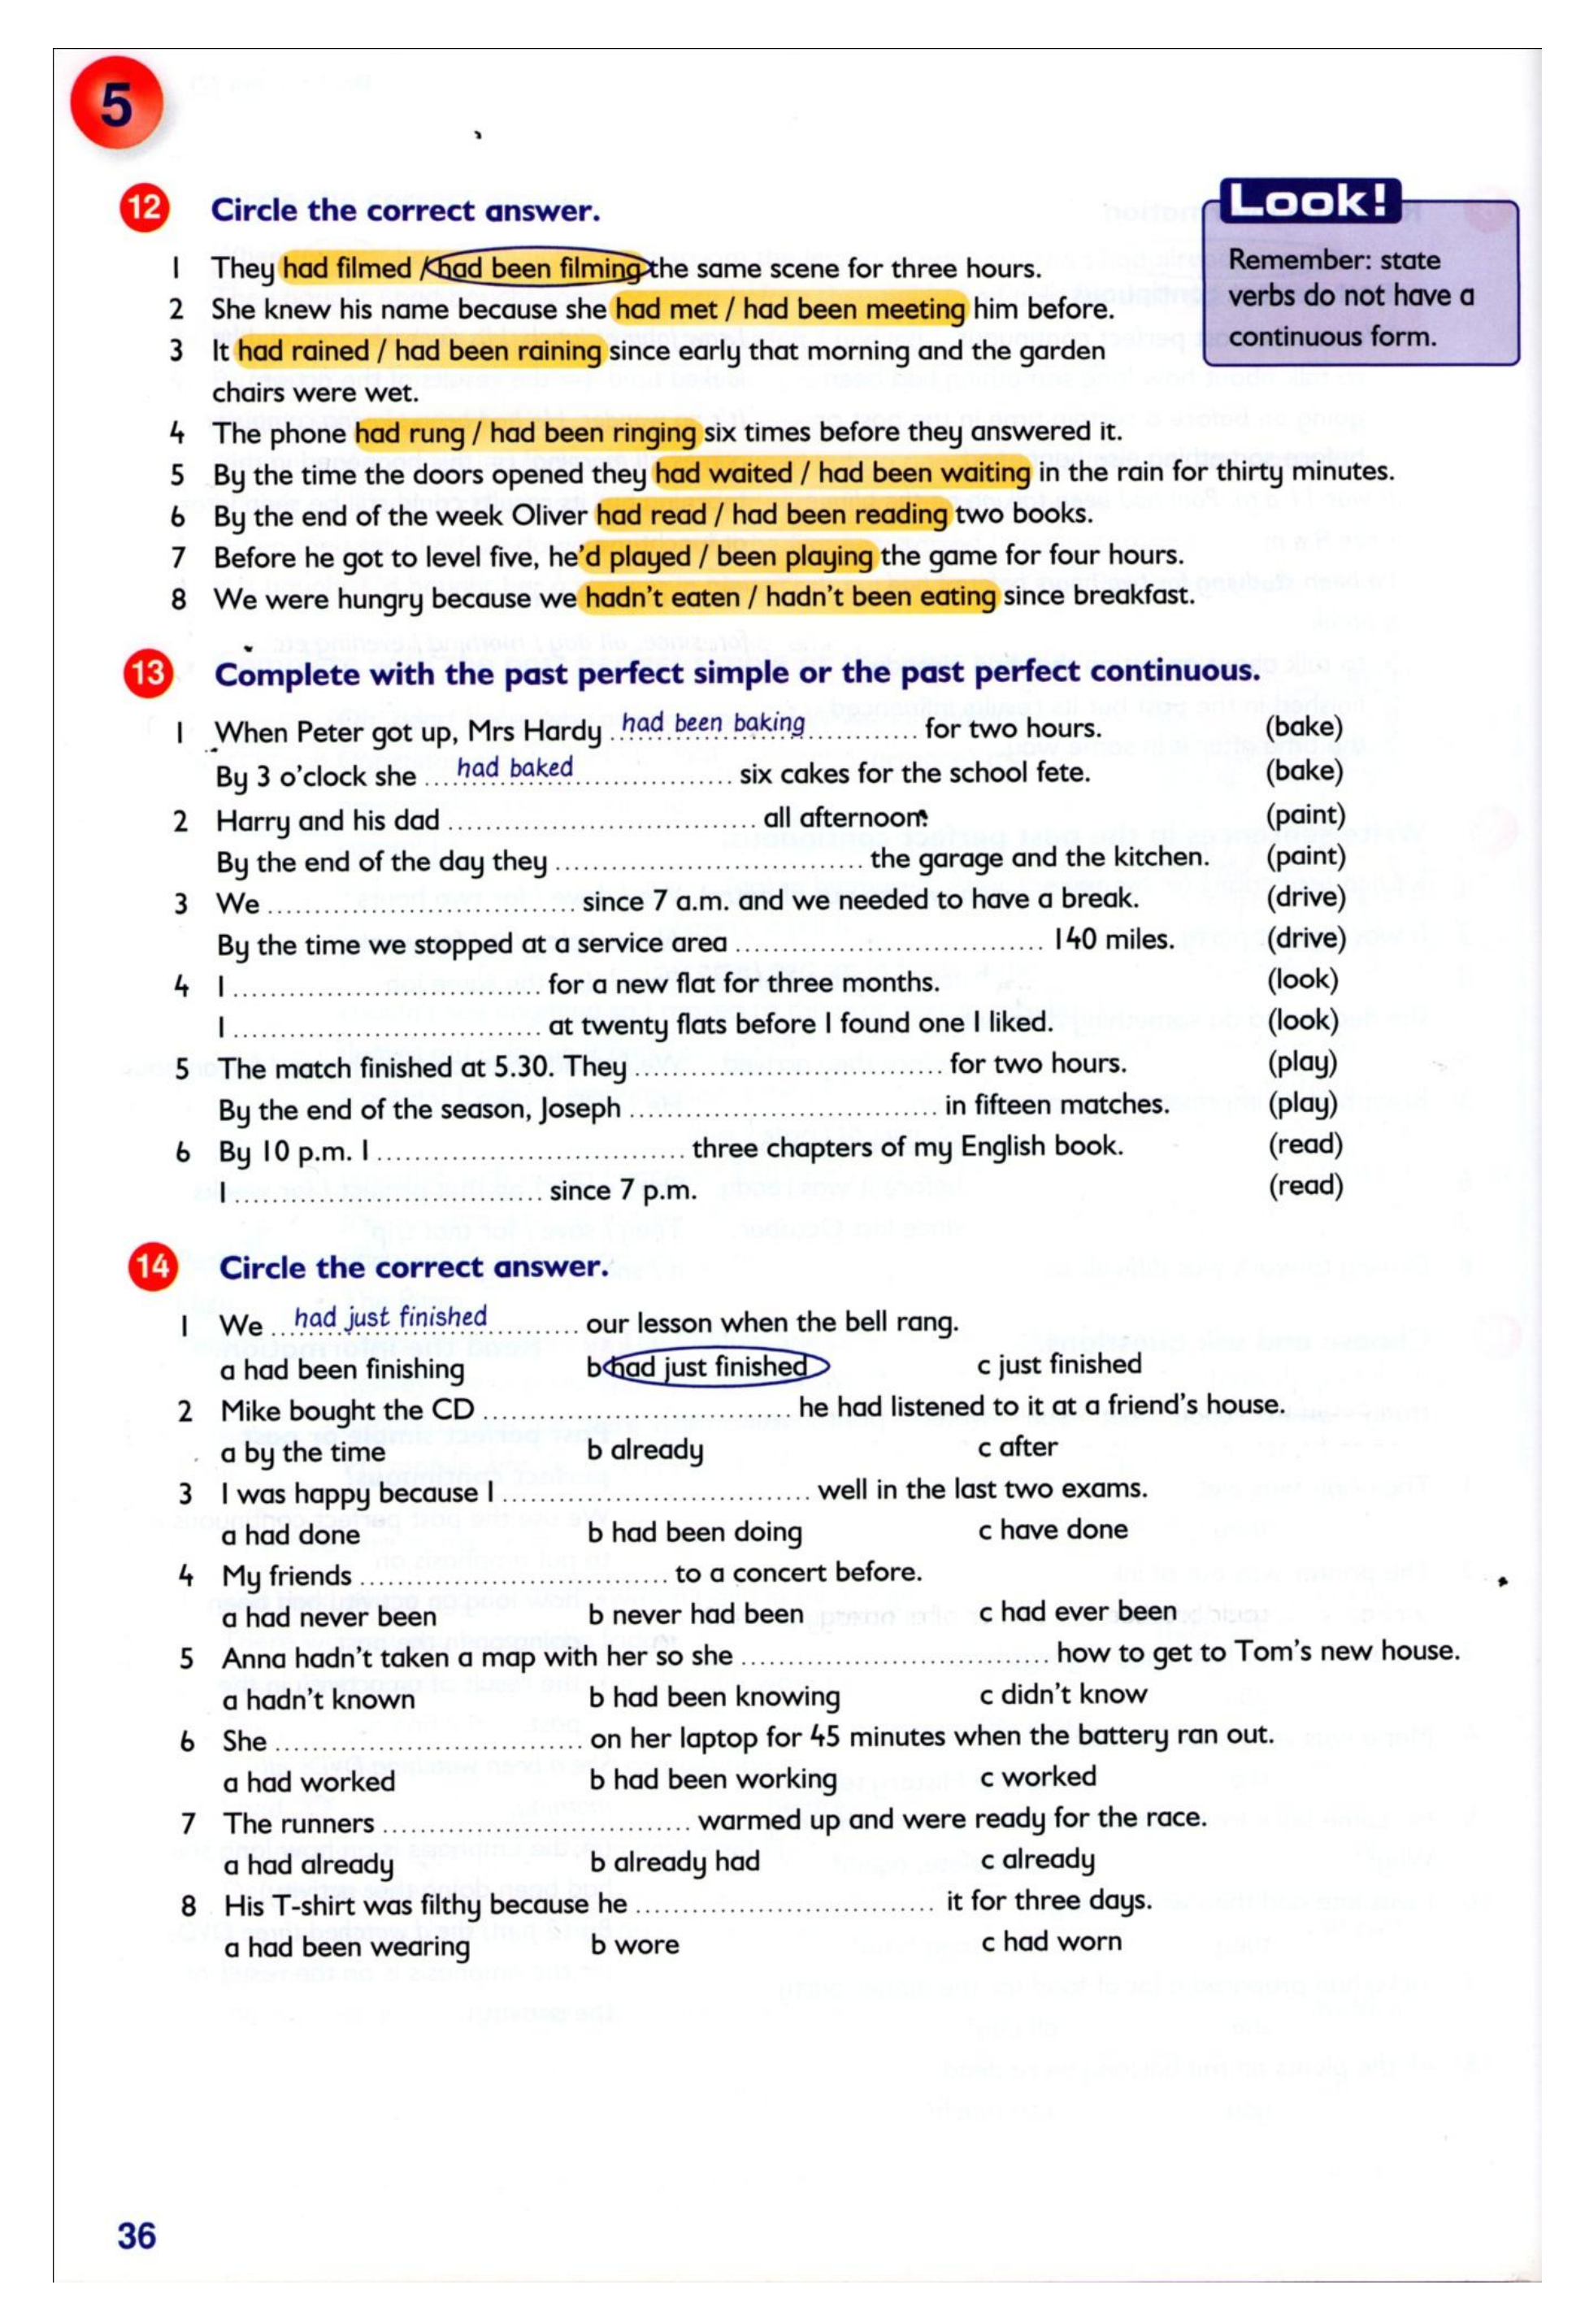 5
12 Circle the correct answer.
Look!
Remember: state
verbs do not have a
continuous form.
1 They had filmed / had been filming the same scene for three hours.
2 She knew his name because she had met / had been meeting him before.
3 It had rained / had been raining since early that morning and the garden
chairs were wet.
4 The phone had rung / had been ringing six times before they answered it.
5 By the time the doors opened they had waited / had been waiting in the rain for thirty minutes.
6 By the end of the week Oliver had read / had been reading two books.
7 Before he got to level five, he'd played / been playing the game for four hours.
8 We were hungry because we hadn't eaten / hadn't been eating since breakfast.
13 Complete with the past perfect simple or the past perfect continuous.
1 When Peter got up, Mrs Hardy had been baking for two hours. (bake)
By 3 o'clock she had baked six cakes for the school fete. (bake)
2 Harry and his dad .......... all afternoon. (paint)
By the end of the day they .......... the garage and the kitchen. (paint)
3 We .......... since 7 a.m. and we needed to have a break. (drive)
By the time we stopped at a service area .......... 140 miles. (drive)
4 I .......... for a new flat for three months. (look)
I .......... at twenty flats before I found one I liked. (look)
5 The match finished at 5.30. They .......... for two hours. (play)
By the end of the season, Joseph .......... in fifteen matches. (play)
6 By 10 p.m. I .......... three chapters of my English book. (read)
I .......... since 7 p.m. (read)
14 Circle the correct answer.
1 We had just finished our lesson when the bell rang.
a had been finishing b had just finished c just finished
2 Mike bought the CD .......... he had listened to it at a friend's house.
a by the time b already c after
3 I was happy because I .......... well in the last two exams.
a had done b had been doing c have done
4 My friends .......... to a concert before.
a had never been b never had been c had ever been
5 Anna hadn't taken a map with her so she .......... how to get to Tom's new house.
a hadn't known b had been knowing c didn't know
6 She .......... on her laptop for 45 minutes when the battery ran out.
a had worked b had been working c worked
7 The runners .......... warmed up and were ready for the race.
a had already b already had c already
8 His T-shirt was filthy because he .......... it for three days.
a had been wearing b wore c had worn
36